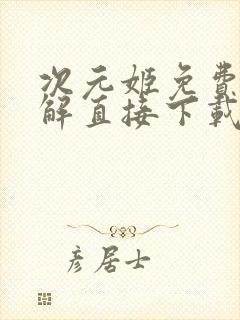 次元姬免费
解直接下载
彦居士